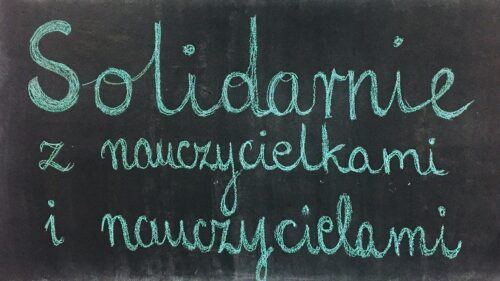 Solidarnie
z nauczycielkami
i nauczycielami